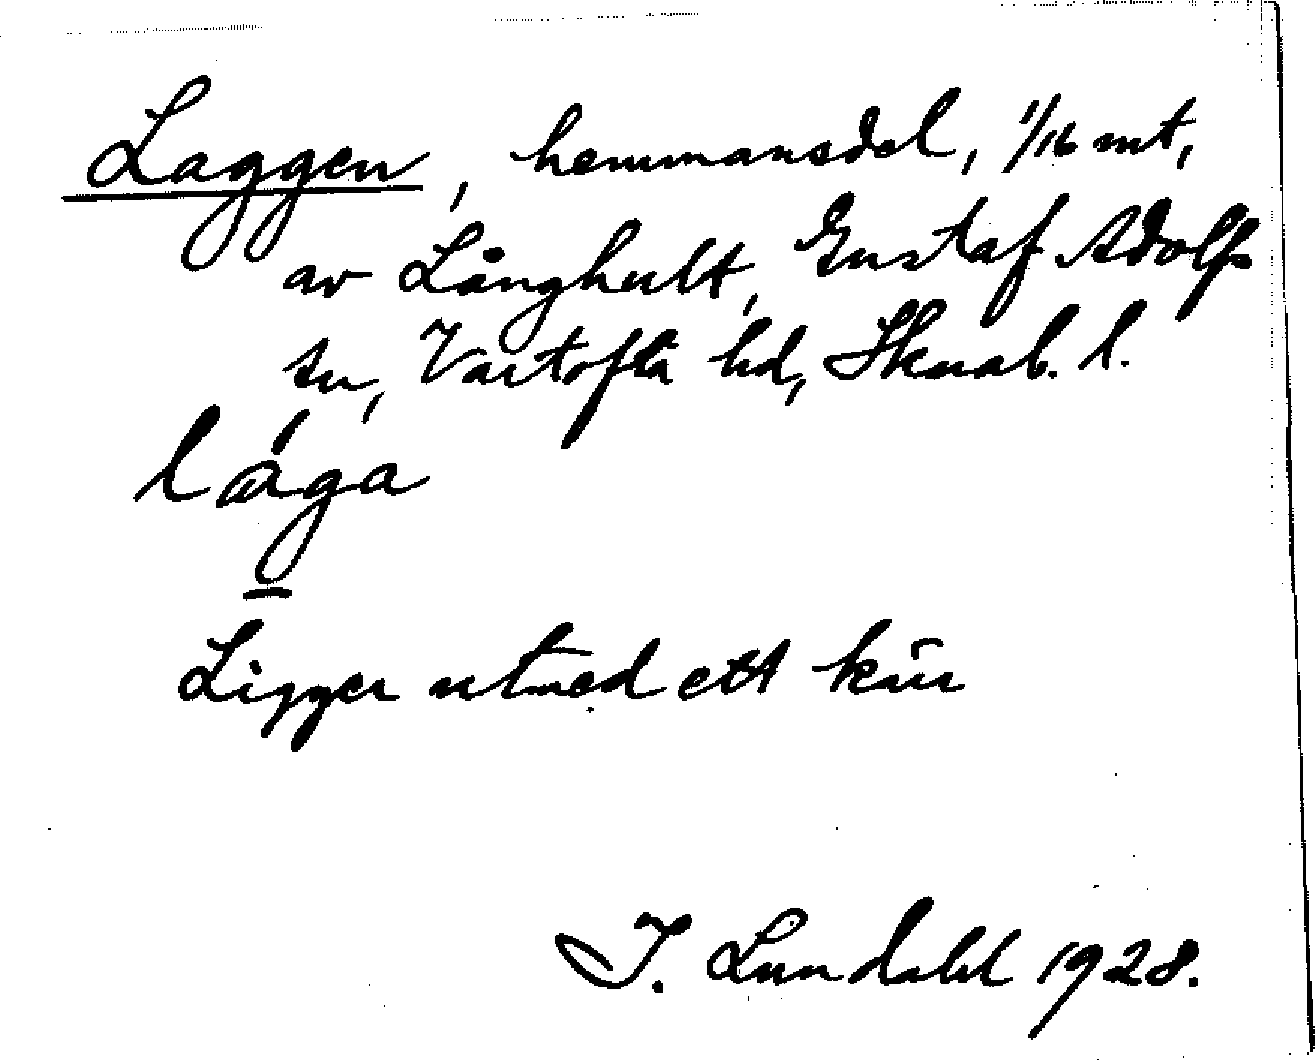 Laggen, hemmansdel, 1/16 mt,
av Långhult, Gustaf Adolfs
sn, Vartofta hd, Skarab. l.
låga
Ligger utmed ett kärr
I. Lundahl 1928.